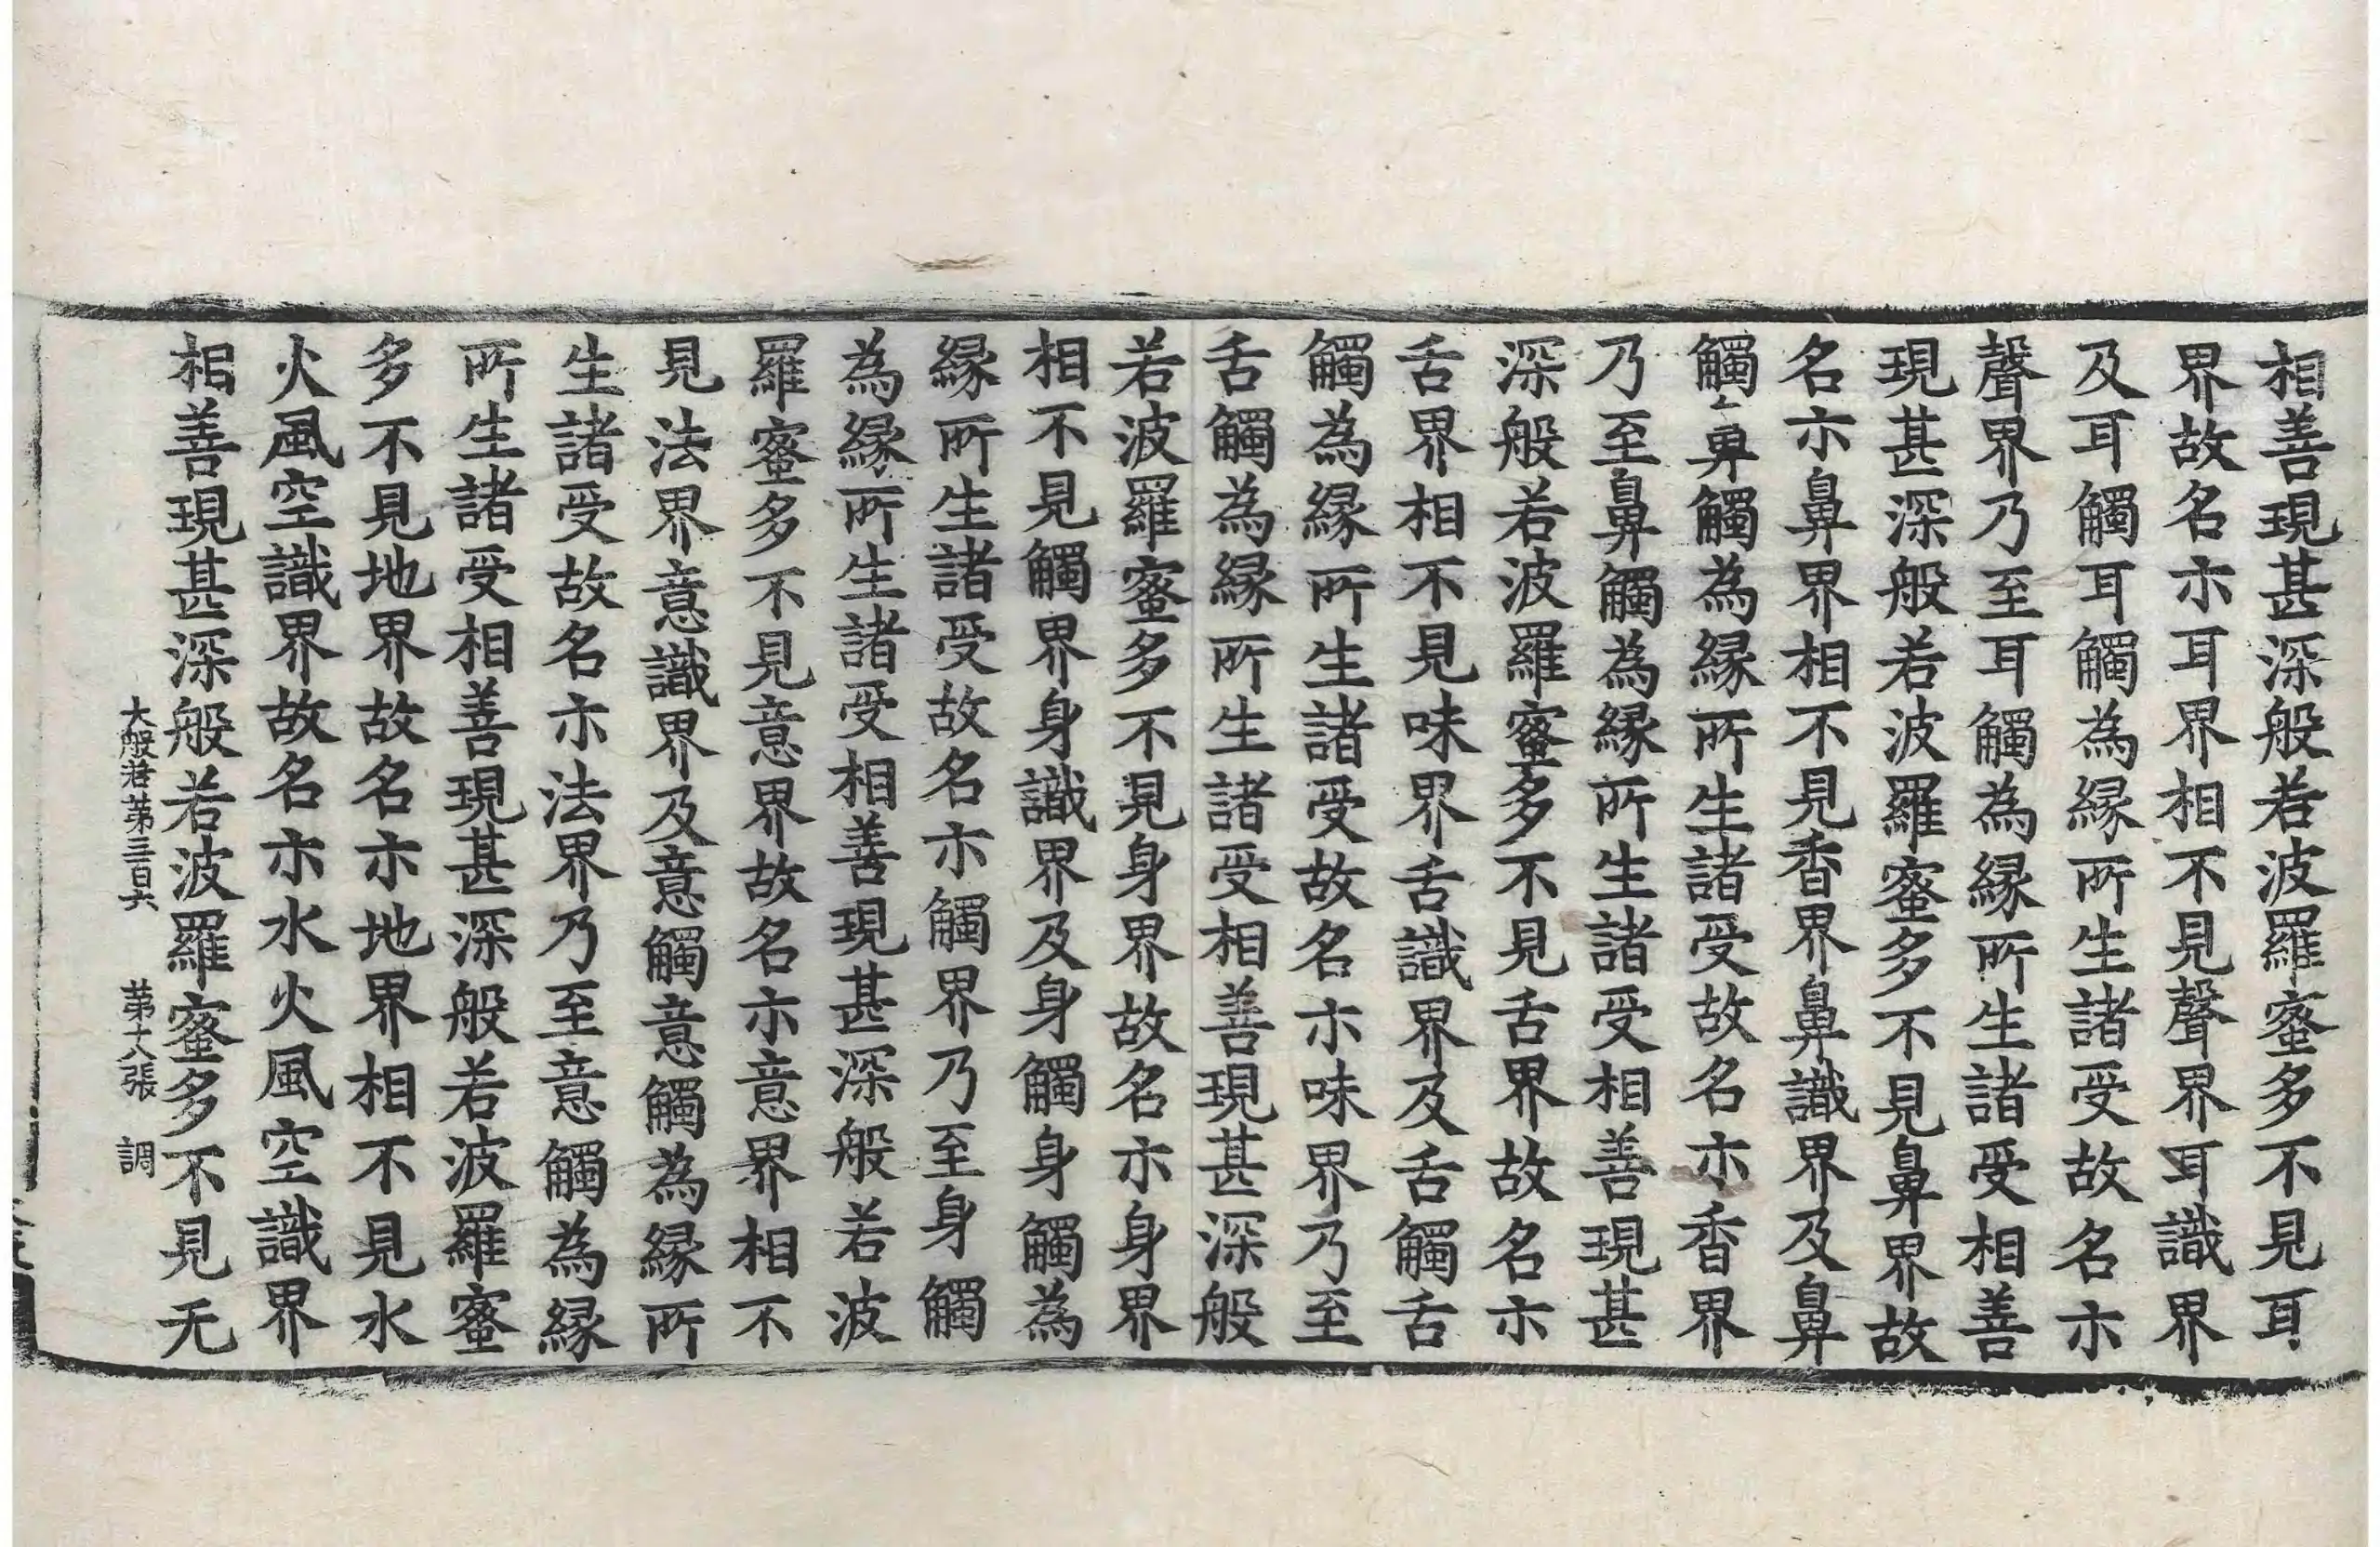 相善現甚深般若波羅蜜多不見耳
界故名亦耳界相不見聲界耳識界
及耳觸耳觸為縁所生諸受故名亦
聲界乃至耳觸為縁所生諸受相善
現甚深般若波羅蜜多不見鼻界故
名亦鼻界相不見香界鼻識界及鼻
觸鼻觸為縁所生諸受故名亦香界
乃至鼻觸為縁所生諸受相善現甚
深般若波羅蜜多不見舌界故名亦
舌界相不見味界舌識界及舌觸舌
觸為縁所生諸受故名亦味界乃至
舌觸為縁所生諸受相善現甚深般
若波羅蜜多不見身界故名亦身界
相不見觸界身識界及身觸身觸為
縁所生諸受故名亦觸界乃至身觸
為縁所生諸受相善現甚深般若波
羅蜜多不見意界故名亦意界相不
見法界意識界及意觸意觸為縁所
生諸受故名亦法界乃至意觸為縁
所生諸受相善現甚深般若波羅蜜
多不見地界故名亦地界相不見水
火風空識界故名亦水火風空識界
相善現甚深般若波羅蜜多不見无
大般若第三百六 第十八張 調